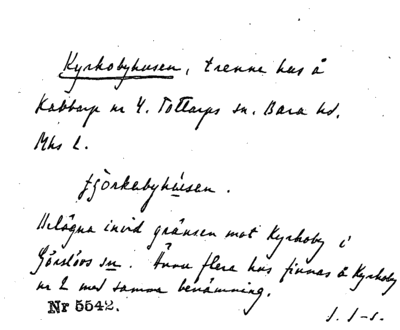 Kyrkobyhusen, trenne hus å
Kabbarp nr 4. Tottarps sn. Bara hd.
Mhs L.
fjörkebyhúsen.
Belägna invid gränsen mot Kyrkoby i
Görslövs sn. Ännu flera hus finnas å Kyrkoby
nr 2 med samma benämning.
Nr 5542.